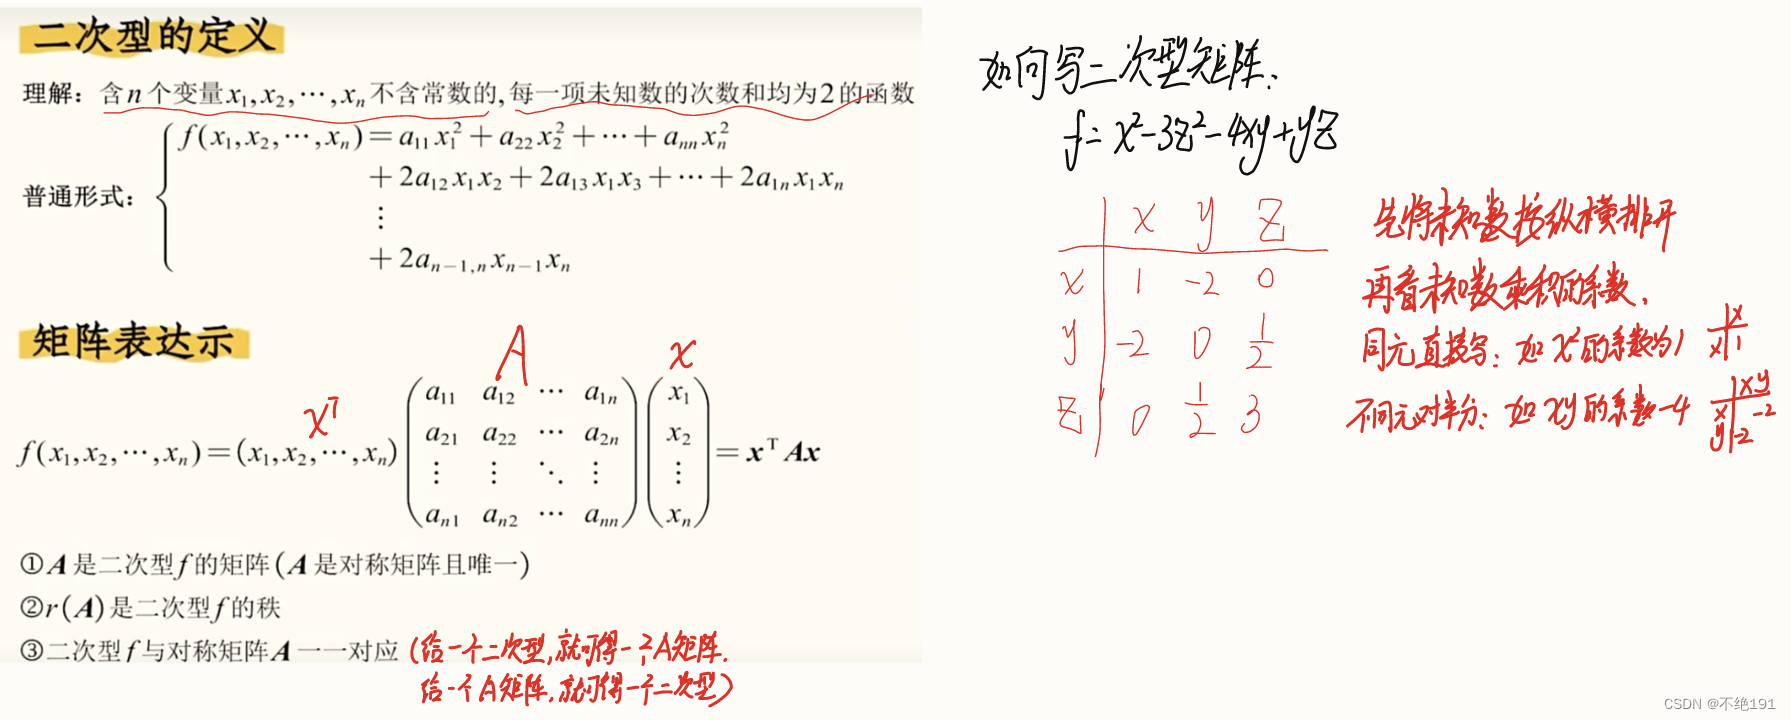 二次型的定义
理解：含n个变量x₁,x₂,⋯,xₙ不含常数的,每一项未知数的次数和均为2的函数
普通形式：
f(x₁,x₂,⋯,xₙ)=a₁₁x₁²+a₂₂x₂²+⋯+aₙₙxₙ²
+2a₁₂x₁x₂+2a₁₃x₁x₃+⋯+2a₁ₙx₁xₙ
⋮
+2aₙ₋₁,ₙxₙ₋₁xₙ
矩阵表达示
A x
xᵀ
a₁₁ a₁₂ ⋯ a₁ₙ x₁
a₂₁ a₂₂ ⋯ a₂ₙ x₂
f(x₁,x₂,⋯,xₙ)=(x₁,x₂,⋯,xₙ) ⋮ ⋮ ⋱ ⋮ ⋮ =xᵀAx
aₙ₁ aₙ₂ ⋯ aₙₙ xₙ
①A是二次型f的矩阵(A是对称矩阵且唯一)
②r(A)是二次型f的秩
③二次型f与对称矩阵A一一对应
(给一个二次型,就可得一个A矩阵.
给一个A矩阵,就可得一个二次型)
如何写二次型矩阵.
f=x²-3z²-4xy+yz
x y z
x 1 -2 0
y -2 0 1/2
z 0 1/2 3
先将未知数按纵横排开
再看未知数乘积的系数,
同元直接写：如x²的系数为1
x
x 1
不同元对半分：如xy的系数-4
x y
x -2
y -2
CSDN @不绝191